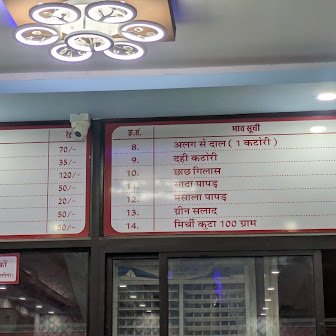 रेट
70/-
35/-
120/-
50/-
20/-
50/-
50/-
क्र.सं. भाव सूची
8. अलग से दाल ( 1 कटोरी )
9. दही कटोरी
10. छाछ गिलास
11. सादा पापड़
12. मसाला पापड़
13. ग्रीन सलाद
14. मिर्ची कुटा 100 ग्राम